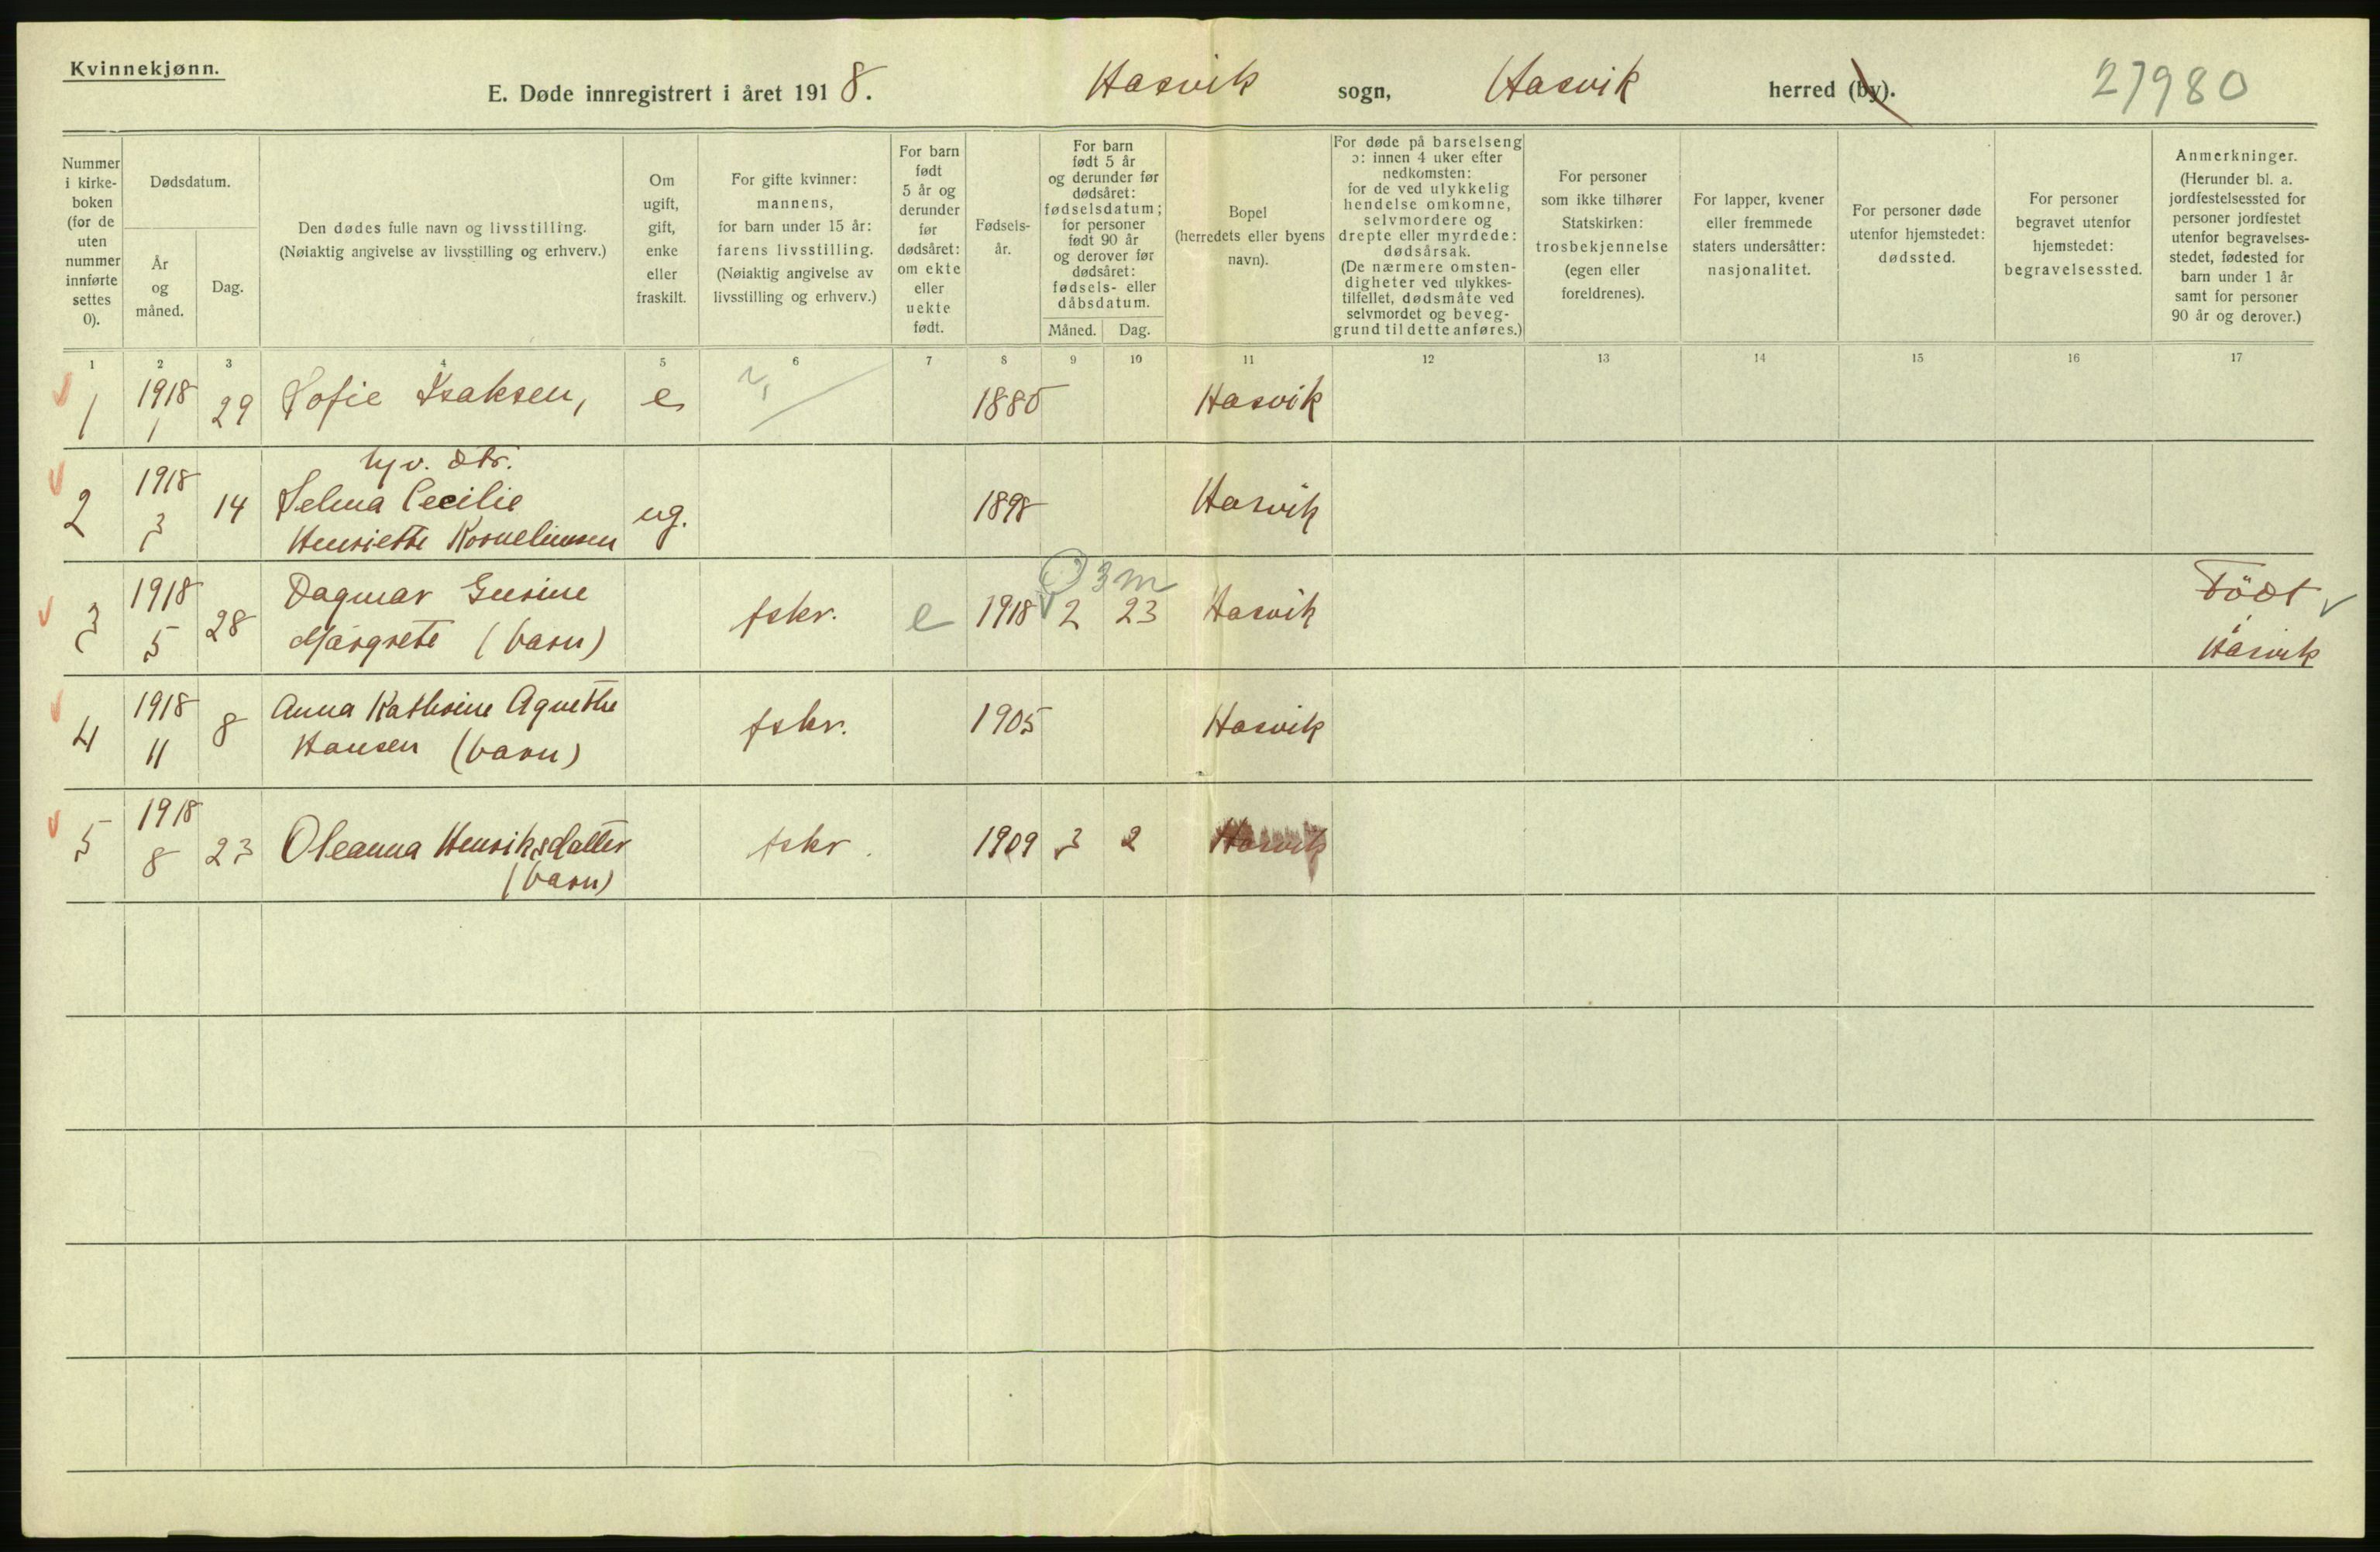 Kvinnekjønn.
E. Døde innregistrert i året 1918. Hasvik sogn, Hasvik herred (by). 27980
Nummer i kirke- boken (for de uten nummer innførte settes 0).
Dødsdatum.
År og måned.
Dag.
Den dødes fulle navn og livsstilling.
(Nøiaktig angivelse av livsstilling og erhverv.)
Om ugift, gift, enke eller fraskilt.
For gifte kvinner: mannens, for barn under 15 år: farens livsstilling. (Nøiaktig angivelse av livsstilling og erhverv.)
For barn født 5 år og derunder før dødsåret: om ekte eller uekte født.
Fødsels- år.
For barn født 5 år og derunder før dødsåret: fødselsdatum; for personer født 90 år og derover før dødsåret: fødsels- eller dåbsdatum.
Måned. Dag.
Bopel (herredets eller byens navn).
For døde på barselseng ɔ: innen 4 uker efter nedkomsten: for de ved ulykkelig hendelse omkomne, selvmordere og drepte eller myrdede: dødsårsak. (De nærmere omsten- digheter ved ulykkes- tilfellet, dødsmåte ved selvmordet og beveg- grund til dette anføres.)
For personer som ikke tilhører Statskirken: trosbekjennelse (egen eller foreldrenes).
For lapper, kvener eller fremmede staters undersåtter: nasjonalitet.
For personer døde utenfor hjemstedet: dødssted.
For personer begravet utenfor hjemstedet: begravelsessted.
Anmerkninger. (Herunder bl. a. jordfestelsessted for personer jordfestet utenfor begravelses- stedet, fødested for barn under 1 år samt for personer 90 år og derover.)
1 2 3 4 5 6 7 8 9 10 11 12 13 14 15 16 17
1 1918 1 29 Sofie Isaksen, e 1880 Hasvik
hv. dtr.
2 1918 3 14 Selma Cecilie
Henriette Korneliussen ug. 1898 Hasvik
3 m
3 1918 5 28 Dagmar Gusine
Margrete (barn) fskr. e 1918 2 23 Hasvik Född
Hasvik
4 1918 11 8 Anna Kathrine Agnethe
Hansen (barn) fskr. 1905 Hasvik
5 1918 8 23 Oleanna Henriksdatter
(barn) fskr. 1909 3 2 Hasvik